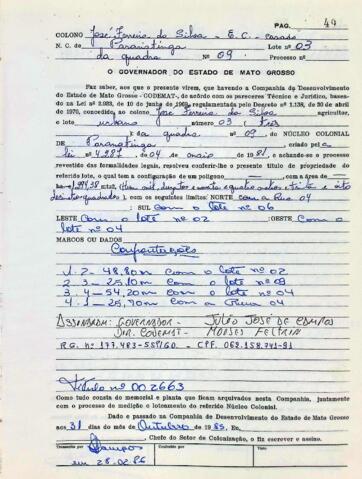 PAG. 49
COLONO José Ferreira da Silva - E. C. Casado
N. C. de Paranatinga Lote nº 03
da quadra Nº 09 Processo nº
O GOVERNADOR DO ESTADO DE MATO GROSSO
Faz saber, aos que o presente virem, que havendo a Companhia de Desenvolvimento
do Estado de Mato Grosso -CODEMAT-, de acordo com os pareceres Técnico e Jurídico, basea-
da na Lei nº 2.933, de 10 de junho de 1969, regulamentada pelo Decreto nº 1.138, de 30 de abril
de 1970, concedido ao colono José Ferreira da Silva agricultor,
e lote urbano número 03 Três
da quadra nº 09. do NÚCLEO COLONIAL
DE Paranatinga criado pela
lei nº 4.287 de 04 de maio 1981 e achando-se o processo
revestido das formalidades legais, resolveu conferir-lhe o presente título de propriedade do
referido lote, o qual tem a configuração de um polígono com a área de
com os seguintes limites: NORTE com a Rua 04
: SUL com o lote nº 06
LESTE com o lote nº 02 :OESTE com o
lote nº 04
MARCOS OU DADOS
Confrontações
1. 2 - 48,80m com o lote nº 02
2. 3 - 25,10m com o lote nº
3. 4 - 54,20m com o lote nº 04
4. 1 - 25,70m com a Rua 04
ASSINARAM: GOVERNADOR - JULIO JOSÉ DE CAMPOS
DIR. CODEMAT - MOISES FELTRIN
R.G. nº 177.483-SSP/GO. - CPF. 062.158.741-91
Título nº 002663
Como tudo consta do memorial e planta que ficam arquivados nesta Companhia, juntamente
com o processo de medição e loteamento do referido Núcleo Colonial.
Dado e passado na Companhia de Desenvolvimento do Estado de Mato Grosso
aos 31 dias do mês de Outubro de 1985. Eu,
Chefe do Setor de Colonização, o fiz escrever e assino.
Transcrito por Conferido por Visto
Campos
em 28.02.86